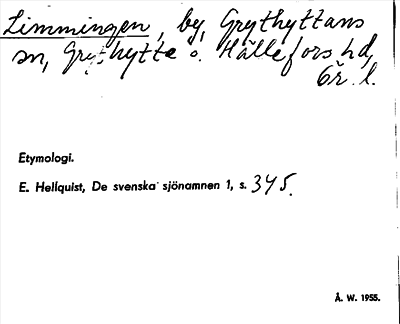 Limmingen, by, Grythyttans
sn, Grythytte o. Hällefors hd,
Ör. l.
Etymologi.
E. Hellquist, De svenska sjönamnen 1, s. 345.
Å. W. 1955.